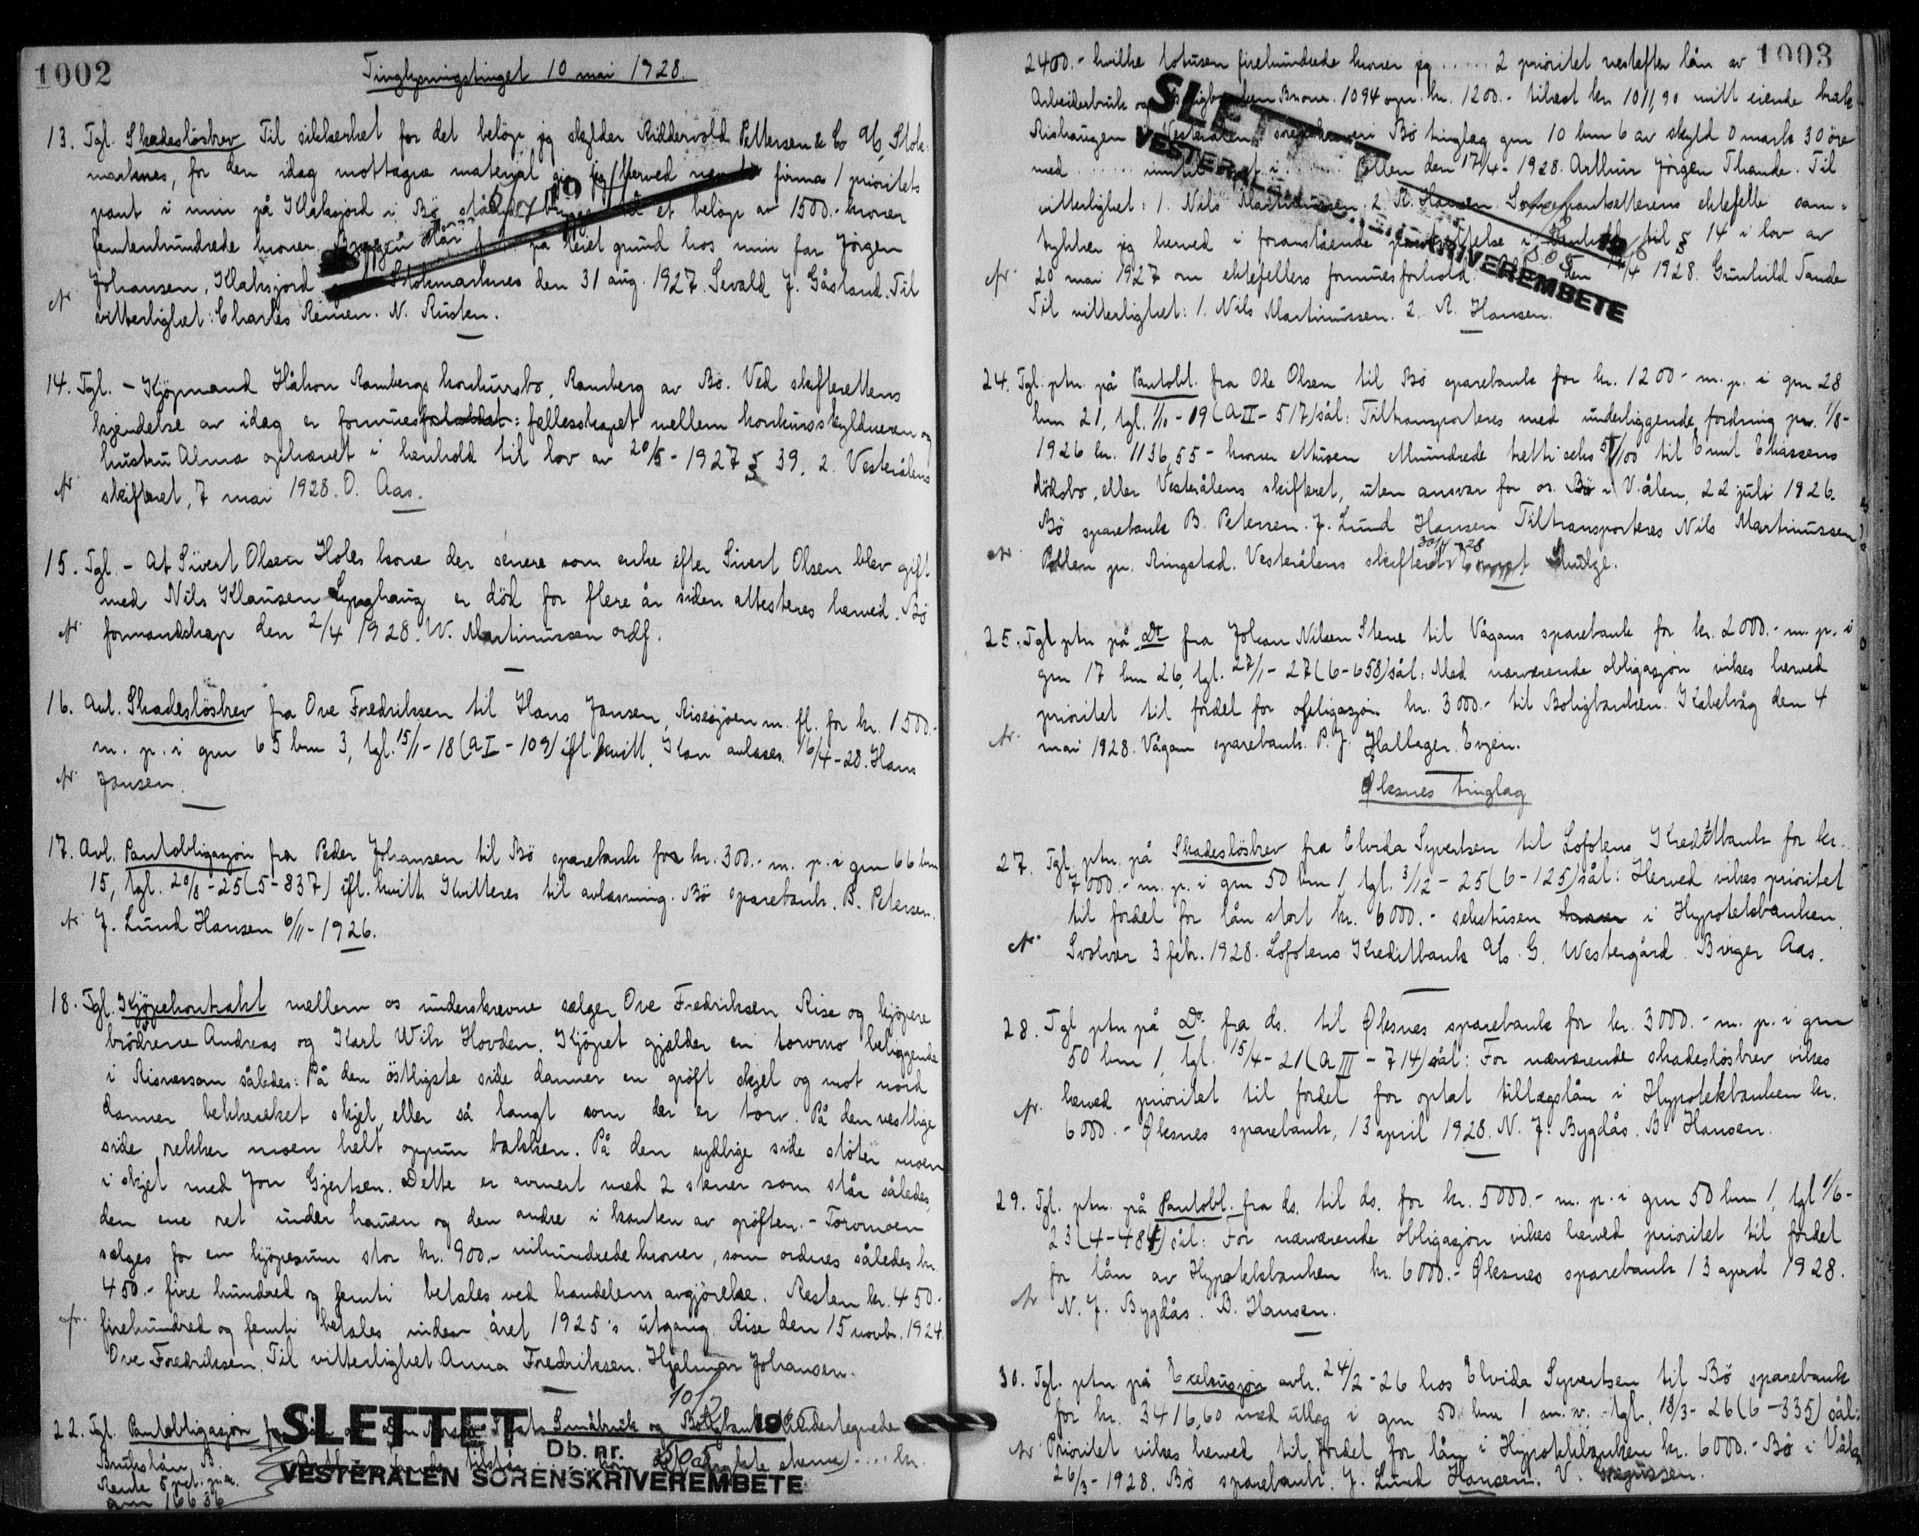 1002
Tinglysningstinget 10 mai 1928.
13. Tgl. Skadesløsbrev Til sikkerhet for det beløp jeg skylder Riddervold Pettersen & Co A/S, Stok-
marknes, for den idag mottagne material gir jeg herved nevnte firma 1 prioritets
pant i min på Klaksjord i Bø et beløp av 1500.- kroner
femtenhundrede kroner. Bryggen står på leiet grund hos min far Jørgen
Johansen, Klaksjord Stokmarknes den 31 aug. 1927. Sevald J. Gåsland. Til
vitterlighet: Charles Reinen. N. Rusten.
14. Tgl. - Kjøpmand Håkon Rambergs konkursbo, Ramberg av Bø. Ved skifterettens
kjendelse av idag er formuesforholdet: fellesskapet mellem konkursskyldneren og
hustru Alma ophævet i henhold til lov av 20/5 - 1927 § 39. 2. Vesterålens
skifteret, 7 mai 1928. O. Aas.
15. Tgl. - At Sivert Olsen Holes kone der senere som enke efter Sivert Olsen blev gift
med Nils Klausen Lynghaug er død for flere år siden attesteres herved. Bø
formandskap den 2/4 1928. W. Martinussen ordf.
16. Avl. Skadesløsbrev fra Ove Fredriksen til Hans Jansen, Risesjøen m. fl. for kr. 1500.-
m. p. i gnr 65 bnr 3, tgl. 15/1-18 (A I - 109) ifl. kvitt. Kan avlæses. 16/4-28. Hans
Jansen.
17. Avl. Pantobligasjon fra Peder Johansen til Bø sparebank for kr. 300.- m. p. i gnr 66 bnr
15, tgl. 20/8-25 (5-837) ifl. kvitt. Kvitteres til avlæsning. Bø sparebank. B. Petersen.
J. Lund Hansen 6/11-1926.
18. Tgl. Kjøpekontrakt mellem os underskrevne sælger Ove Fredriksen Rise og kjøpere
brødrene Andreas og Karl Wilh. Hovden. Kjøpet gjælder en torvmo beliggende
i Risnessam således: På den østligste side danner en grøft skjel og mot nord
danner bekkeréket skjel eller så langt som der er torv. På den vestlige
side rekker moen helt oppun bakken. På den sydlige side støter moen
i skjel med Jon Gjertsen. Dette er avmert med 2 stener som står således,
den ene ret under hauen og den andre i kanten av grøften. - Torvmoen
sælges for en kjøpesum stor kr. 900.- nihundrede kroner, som ordnes således kr.
450.- fire hundred og femti betales ved handelens avgjørelse. Resten kr. 450.-
firehundred og femti betales inden året 1925's utgang. Rise den 15 novbr. 1924.
Ove Fredriksen. Til vitterlighet Anna Fredriksen. Hjalmar Johansen.
22. Tgl. Pantobligasjon Småbruk og Boligbank Undertegnede
Brukslån A.
SLETTET
Db. nr. 2505
VESTERÅLEN SORENSKRIVEREMBETE
1003
2400.- hvilke totusen firehundrede kroner jeg ...... 2 prioritet nestefter lån av
Arbeiderbruk og 1094 opr. kr. 1200.- tilrest kr 1011,90 mitt eiende bruk
Rishaugen Vesterålens Bø tinglag gnr 10 bnr 6 av skyld 0 mark 30 øre
med ...... Pollen den 17/4 - 1928. Arthur Jørgen Thande. Til
vitterlighet: 1. Nils Martinussen. 2. R. Hansen. Som pantsetterens ektefelle sam-
tykker jeg herved i foranstående pantsettelse i henhold til § 14 i lov av
20 mai 1927 om ektefellers formuesforhold. den 17/4 1928. Gunhild Tande
Til vitterlighet: 1. Nils Martinussen. 2. R. Hansen.
SLETTET
VESTERÅLEN SORENSKRIVEREMBETE
24. Tgl. ptn. på Pantobl. fra Ole Olsen til Bø sparebank for kr. 1200- m. p. i gnr 28
bnr 21, tgl. 1/10-19 (A II - 517) sål: Tiltransporteres med underliggende fordring pr. 1/8-
1926 kr. 1136,55 - kroner ettusen etthundrede trettiseks 55/100 til Emil Eliassens
dødsbo, eller Vesterålens skifteret, uten ansvar for os. Bø i V.ålen, 22 juli 1926.
Bø sparebank B. Petersen. J. Lund Hansen Tiltransporteres Nils Martinussen
Pollen pr. Ringstad. Vesterålens skifteret 30/4-28
25. Tgl ptn på Do fra Johan Nilsen Stene til Vågans sparebank for kr. 2000.- m. p. i
gnr 17 bnr 26, tgl. 27/1-27 (6-658) sål: Med nærværende obligasjon vikes herved
prioritet til fordel for obligasjon kr. 3000.- til Boligbanken. Kabelvåg den 4
mai 1928. Vågan sparebank. P. J. Hallager. Evjen.
Øksnes tinglag
27. Tgl. ptn. på Skadesløsbrev fra Elvida Syvertsen til Lofotens Kreditbank for kr.
7000.- m. p. i gnr 50 bnr 1, tgl. 3/12-25 (6-125) sål: Herved vikes prioritet
til fordel for lån stort kr. 6000.- sekstusen i Hypotekbanken.
Svolvær 3 febr. 1928. Lofotens Kreditbank A/S. G. Westergård. Birger Aas.
28. Tgl ptn på Do. fra ds. til Øksnes sparebank for kr. 3000.- m. p. i gnr
50 bnr 1, tgl. 15/4-21 (A III - 714) sål: For nærværende skadesløsbrev vikes
herved prioritet til fordel for optat tillægslån i Hypotekbanken kr.
6000.- Øksnes sparebank, 13 april 1928. N. J. Bygdås. B. Hansen.
29. Tgl. ptn. på Pantobl. fra ds. til ds. for kr. 5000.- m. p. i gnr 50 bnr 1, tgl 1/6-
23 (4-484) sål: For nærværende obligasjon vikes herved prioritet til fordel
for lån av Hypotekbanken kr. 6000.- Øksnes sparebank 13 april 1928.
N. J. Bygdås. B. Hansen.
30. Tgl. ptn på Exekusjon avh. 24/2-26 hos Elvida Syvertsen til Bø sparebank
for kr. 3416,60 med utlag i gnr 50 bnr 1 m. v. tgl. 18/3-26 (6-335) sål:
Prioritet vikes herved til fordel for lån i Hypotekbanken kr. 6000.- Bø i V.ålen
26/3-1928. Bø sparebank. J. Lund Hansen. V.